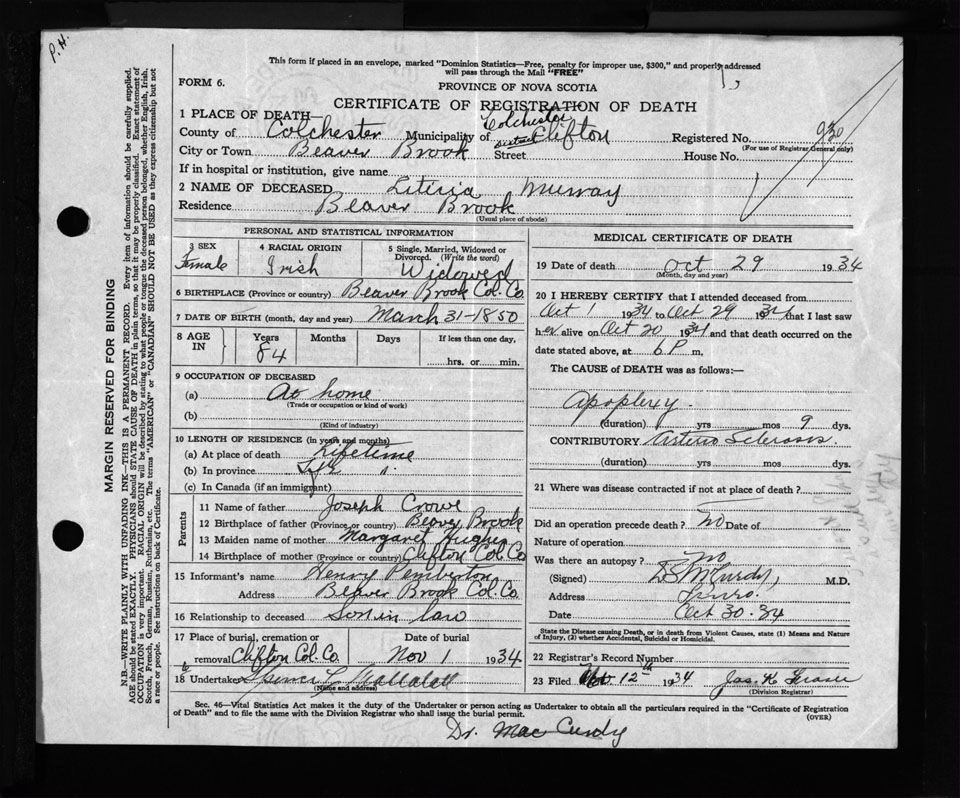 P.H.
This form if placed in an envelope, marked "Dominion Statistics—Free, penalty for improper use, $300," and properly addressed
will pass through the Mail "FREE"
FORM 6.
PROVINCE OF NOVA SCOTIA
CERTIFICATE OF REGISTRATION OF DEATH
1 PLACE OF DEATH—
County of Colchester Municipality of Colchester District Clifton Registered No. 930
(For use of Registrar General only)
City or Town Beaver Brook Street House No.
If in hospital or institution, give name
2 NAME OF DECEASED Leticia Murray
Residence Beaver Brook
(Usual place of abode)
PERSONAL AND STATISTICAL INFORMATION
3 SEX Female
4 RACIAL ORIGIN Irish
5 Single, Married, Widowed or Divorced. (Write the word) Widowed
6 BIRTHPLACE (Province or country) Beaver Brook Col. Co.
7 DATE OF BIRTH (month, day and year) March 31-1850
8 AGE IN Years 84 Months Days If less than one day, hrs. or min.
9 OCCUPATION OF DECEASED
(a) At home
(Trade or occupation or kind of work)
(b)
(Kind of industry)
10 LENGTH OF RESIDENCE (in years and months)
(a) At place of death Lifetime
(b) In province Life "
(c) In Canada (if an immigrant)
Parents
11 Name of father Joseph Crowe
12 Birthplace of father (Province or country) Beaver Brook
13 Maiden name of mother Margaret Hughes
14 Birthplace of mother (Province or country) Clifton Col. Co
15 Informant's name Henry Pemberton
Address Beaver Brook Col. Co.
16 Relationship to deceased Son in law
17 Place of burial, cremation or removal Clifton Col. Co. Date of burial Nov 1 1934
18 Undertaker Spencer L
(Name and address)
MEDICAL CERTIFICATE OF DEATH
19 Date of death Oct 29 1934
(Month, day and year)
20 I HEREBY CERTIFY that I attended deceased from
Oct 1 1934 to Oct 29 1934 that I last saw
her alive on Oct 20 1934 and that death occurred on the
date stated above, at 6 P m.
The CAUSE of DEATH was as follows:—
Apoplexy
(duration) yrs mos 9 dys.
CONTRIBUTORY Arterio Sclerosis
(duration) yrs mos dys.
21 Where was disease contracted if not at place of death?
Did an operation precede death? No Date of
Nature of operation
Was there an autopsy? No
(Signed) McCurdy, M.D.
Address Truro.
Date Oct 30-34
State the Disease causing Death, or in death from Violent Causes, state (1) Means and Nature
of Injury, (2) whether Accidental, Suicidal or Homicidal.
22 Registrar's Record Number
23 Filed Nov 12th 1934 Jas. K. Fraser
(Division Registrar)
Sec. 46—Vital Statistics Act makes it the duty of the Undertaker or person acting as Undertaker to obtain all the particulars required in the "Certificate of Registration
of Death" and to file the same with the Division Registrar who shall issue the burial permit.
(OVER)
Dr. MacCurdy
MARGIN RESERVED FOR BINDING
N.B.—WRITE PLAINLY WITH UNFADING INK—THIS IS A PERMANENT RECORD. Every item of information should be carefully supplied.
AGE should be stated EXACTLY. PHYSICIANS should STATE CAUSE OF DEATH in plain terms, so that it may be properly classified. Exact statement of
OCCUPATION is very important. RACIAL ORIGIN will be described by stating to what people or tongue the deceased person belonged, whether English, Irish,
Scotch, French, German, Russian, Ruthenian, etc. The terms "AMERICAN" or "CANADIAN" SHOULD NOT BE USED as they express citizenship but not
a race or people. See instructions on back of Certificate.